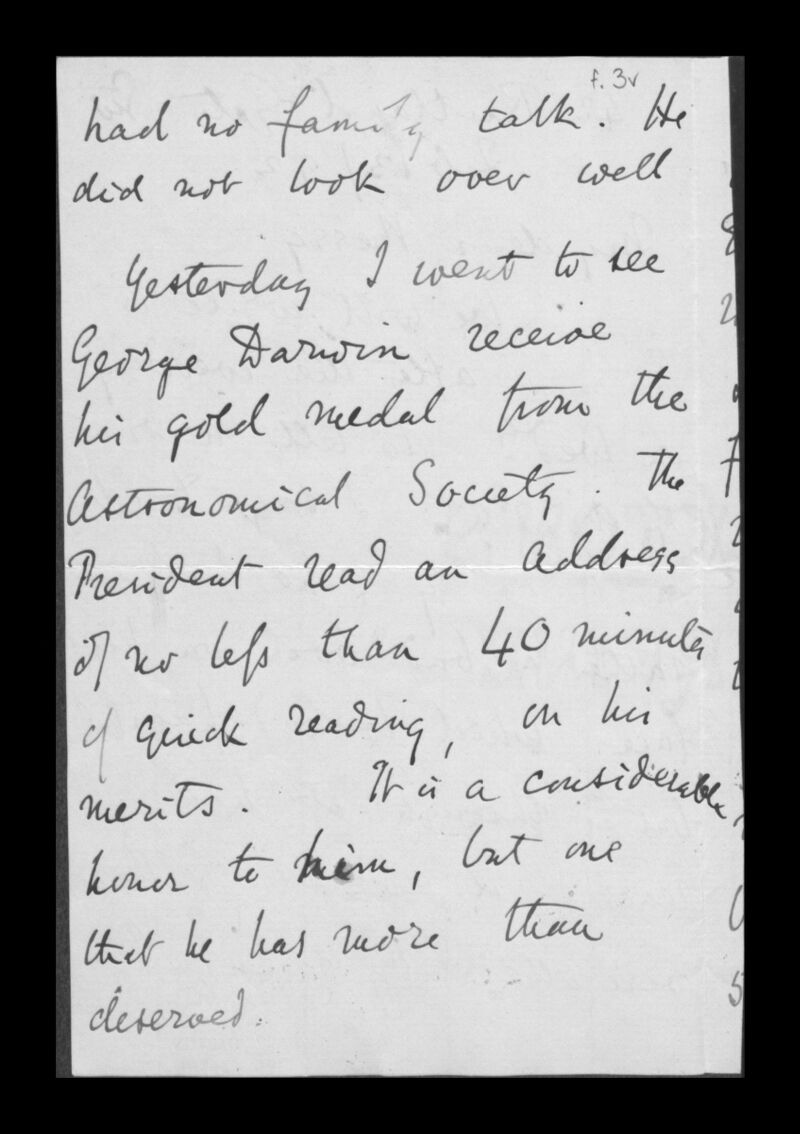 f. 3v
had no family talk. He
did not look over well
Yesterday I went to see
George Darwin receive
his gold medal from the
Astronomical Society. The
President read an address
of no less than 40 minutes
of quick reading, on his
merits. It is a considerable
honor to him, but one
that he has more than
deserved.